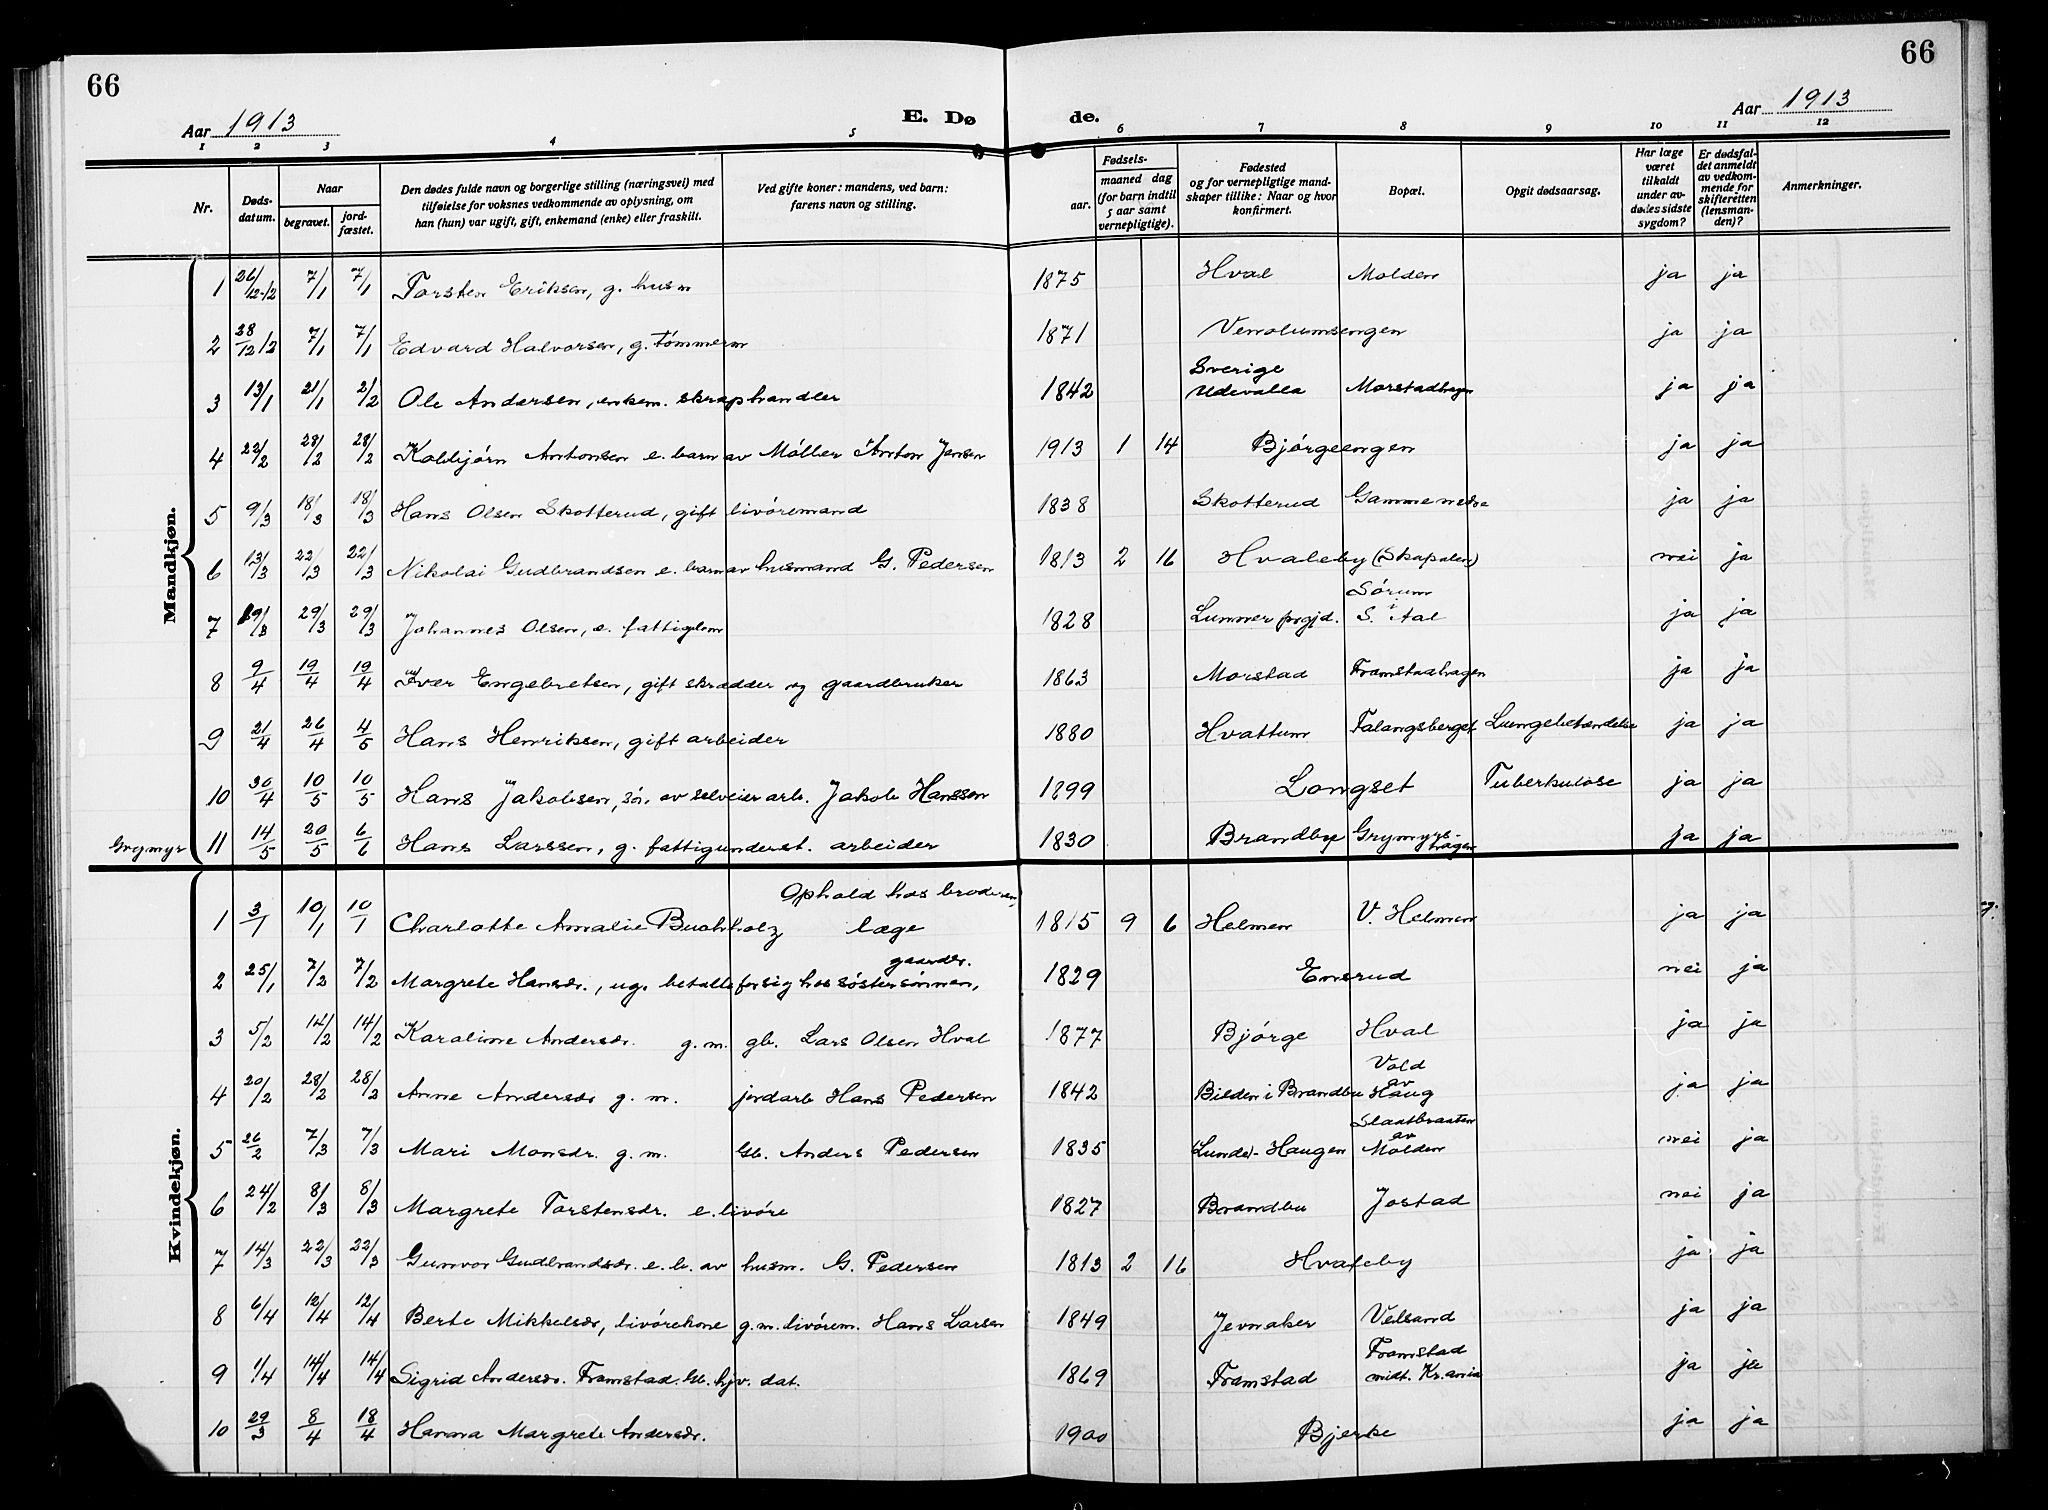 66
66
Aar 1913
E. Dø de.
Aar 1913
1 2 3 4 5 6 7 8 9 10 11 12
Nr.
Døds-
datum.
Naar
begravet.
jord-
fæstet.
Den dødes fulde navn og borgerlige stilling (næringsvei) med
tilføielse for voksnes vedkommende av oplysning, om
han (hun) var ugift, gift, enkemand (enke) eller fraskilt.
Ved gifte koner: mandens, ved barn:
farens navn og stilling.
Fødsels-
aar.
maaned dag
(for barn indtil
5 aar samt
vernepligtige).
Fødested
og for vernepligtige mand-
skaper tillike: Naar og hvor
konfirmert.
Bopæl.
Opgit dødsaarsag.
Har læge
været
tilkaldt
under av-
dødes sidste
sygdom?
Er dødsfal-
det anmeldt
av vedkom-
mende for
skifteretten
(lensman-
den)?
Anmerkninger.
Mandkjøn.
1 26/12-12 7/1 7/1 Torsten Eriksen, g. husm 1875 Hval Molden ja ja
2 28/12 12 7/1 7/1 Edvard Halvorsen, g. tømmerm 1871 Vennolumsengen ja ja
3 13/1 21/1 2/2 Ole Andersen, enkem. skraphandler 1842 Sverige Udevalla Morstadhagen ja ja
4 22/2 28/2 28/2 Kolbjørn Antonsen e. barn av Møller Anton Jensen 1913 1 14 Bjørgeengen ja ja
5 9/3 18/3 18/3 Hans Olsen Skotterud, gift livøremand 1838 Skotterud ja ja
6 13/3 22/3 22/3 Nikolai Gudbrandsen e. barn av husmand G. Pedersen 1813 2 16 Hvaleby (Skapalen) nei ja
7 19/3 29/3 29/3 Johannes Olsen, e. fattiglem 1828 Lunner prgjd. Sørum i S. Aal ja ja
8 9/4 19/4 19/4 Iver Engebretsen, gift skrædder og gaardbruker 1863 Morstad Framstadhagen ja ja
9 21/4 26/4 4/5 Hans Henriksen, gift arbeider 1880 Hvattum Falangsberget Lungebetændelse ja ja
10 30/4 10/5 10/5 Hans Jakobsen, søn av selveier arb. Jakob Hanssen 1899 Longset Tuberkulose ja ja
Grymyr 11 14/5 20/5 6/6 Hans Larssen, g. fattigunderst. arbeider 1830 Brandbu Grymyrs-hagen ja ja
Kvindekjøn.
Ophold hos broderen,
1 3/1 10/1 10/1 Charlotte Amalie Buchholz læge 1815 9 6 Helmen V. Helmen ja ja
gaardbr.
2 25/1 7/2 7/2 Margrete Hansdr., ug. betalte for sig hos søstersønnen, 1829 Ensrud nei ja
3 5/2 14/2 14/2 Karoline Andersdr. g. m. gb. Lars Olsen Hval 1877 Bjørge Hval ja ja
4 20/2 28/2 28/2 Anne Andersdr g. m. jordarb Hans Pedersen 1842 Bilden i Brandbu Vold av Haug ja ja
5 26/2 7/3 7/3 Mari Monsdr. g. m. Gb. Anders Pedersen 1835 (Lunde)- Haugen Slaatbraaten av Molden nei ja
6 24/2 8/3 8/3 Margrete Torstensdr. e. livøre 1827 Brandbu Jostad nei ja
7 14/3 22/3 22/3 Gunvor Gudbrandsdr. e. b. av husm. G. Pedersen 1813 2 16 Hvaleby ja ja
8 6/4 12/4 12/4 Berte Mikkelsdr, livørekone g. m. livørem. Hans Larsen 1849 Jevnaker Velsand ja ja
9 1/4 14/4 14/4 Sigrid Andersdr. Framstad. Gb. hjv. dat. 1869 Framstad Framstad midt. Kr.ania ja ja
10 29/3 8/4 18/4 Hanna Margrete Andersdr. 1900 Bjerke ja ja